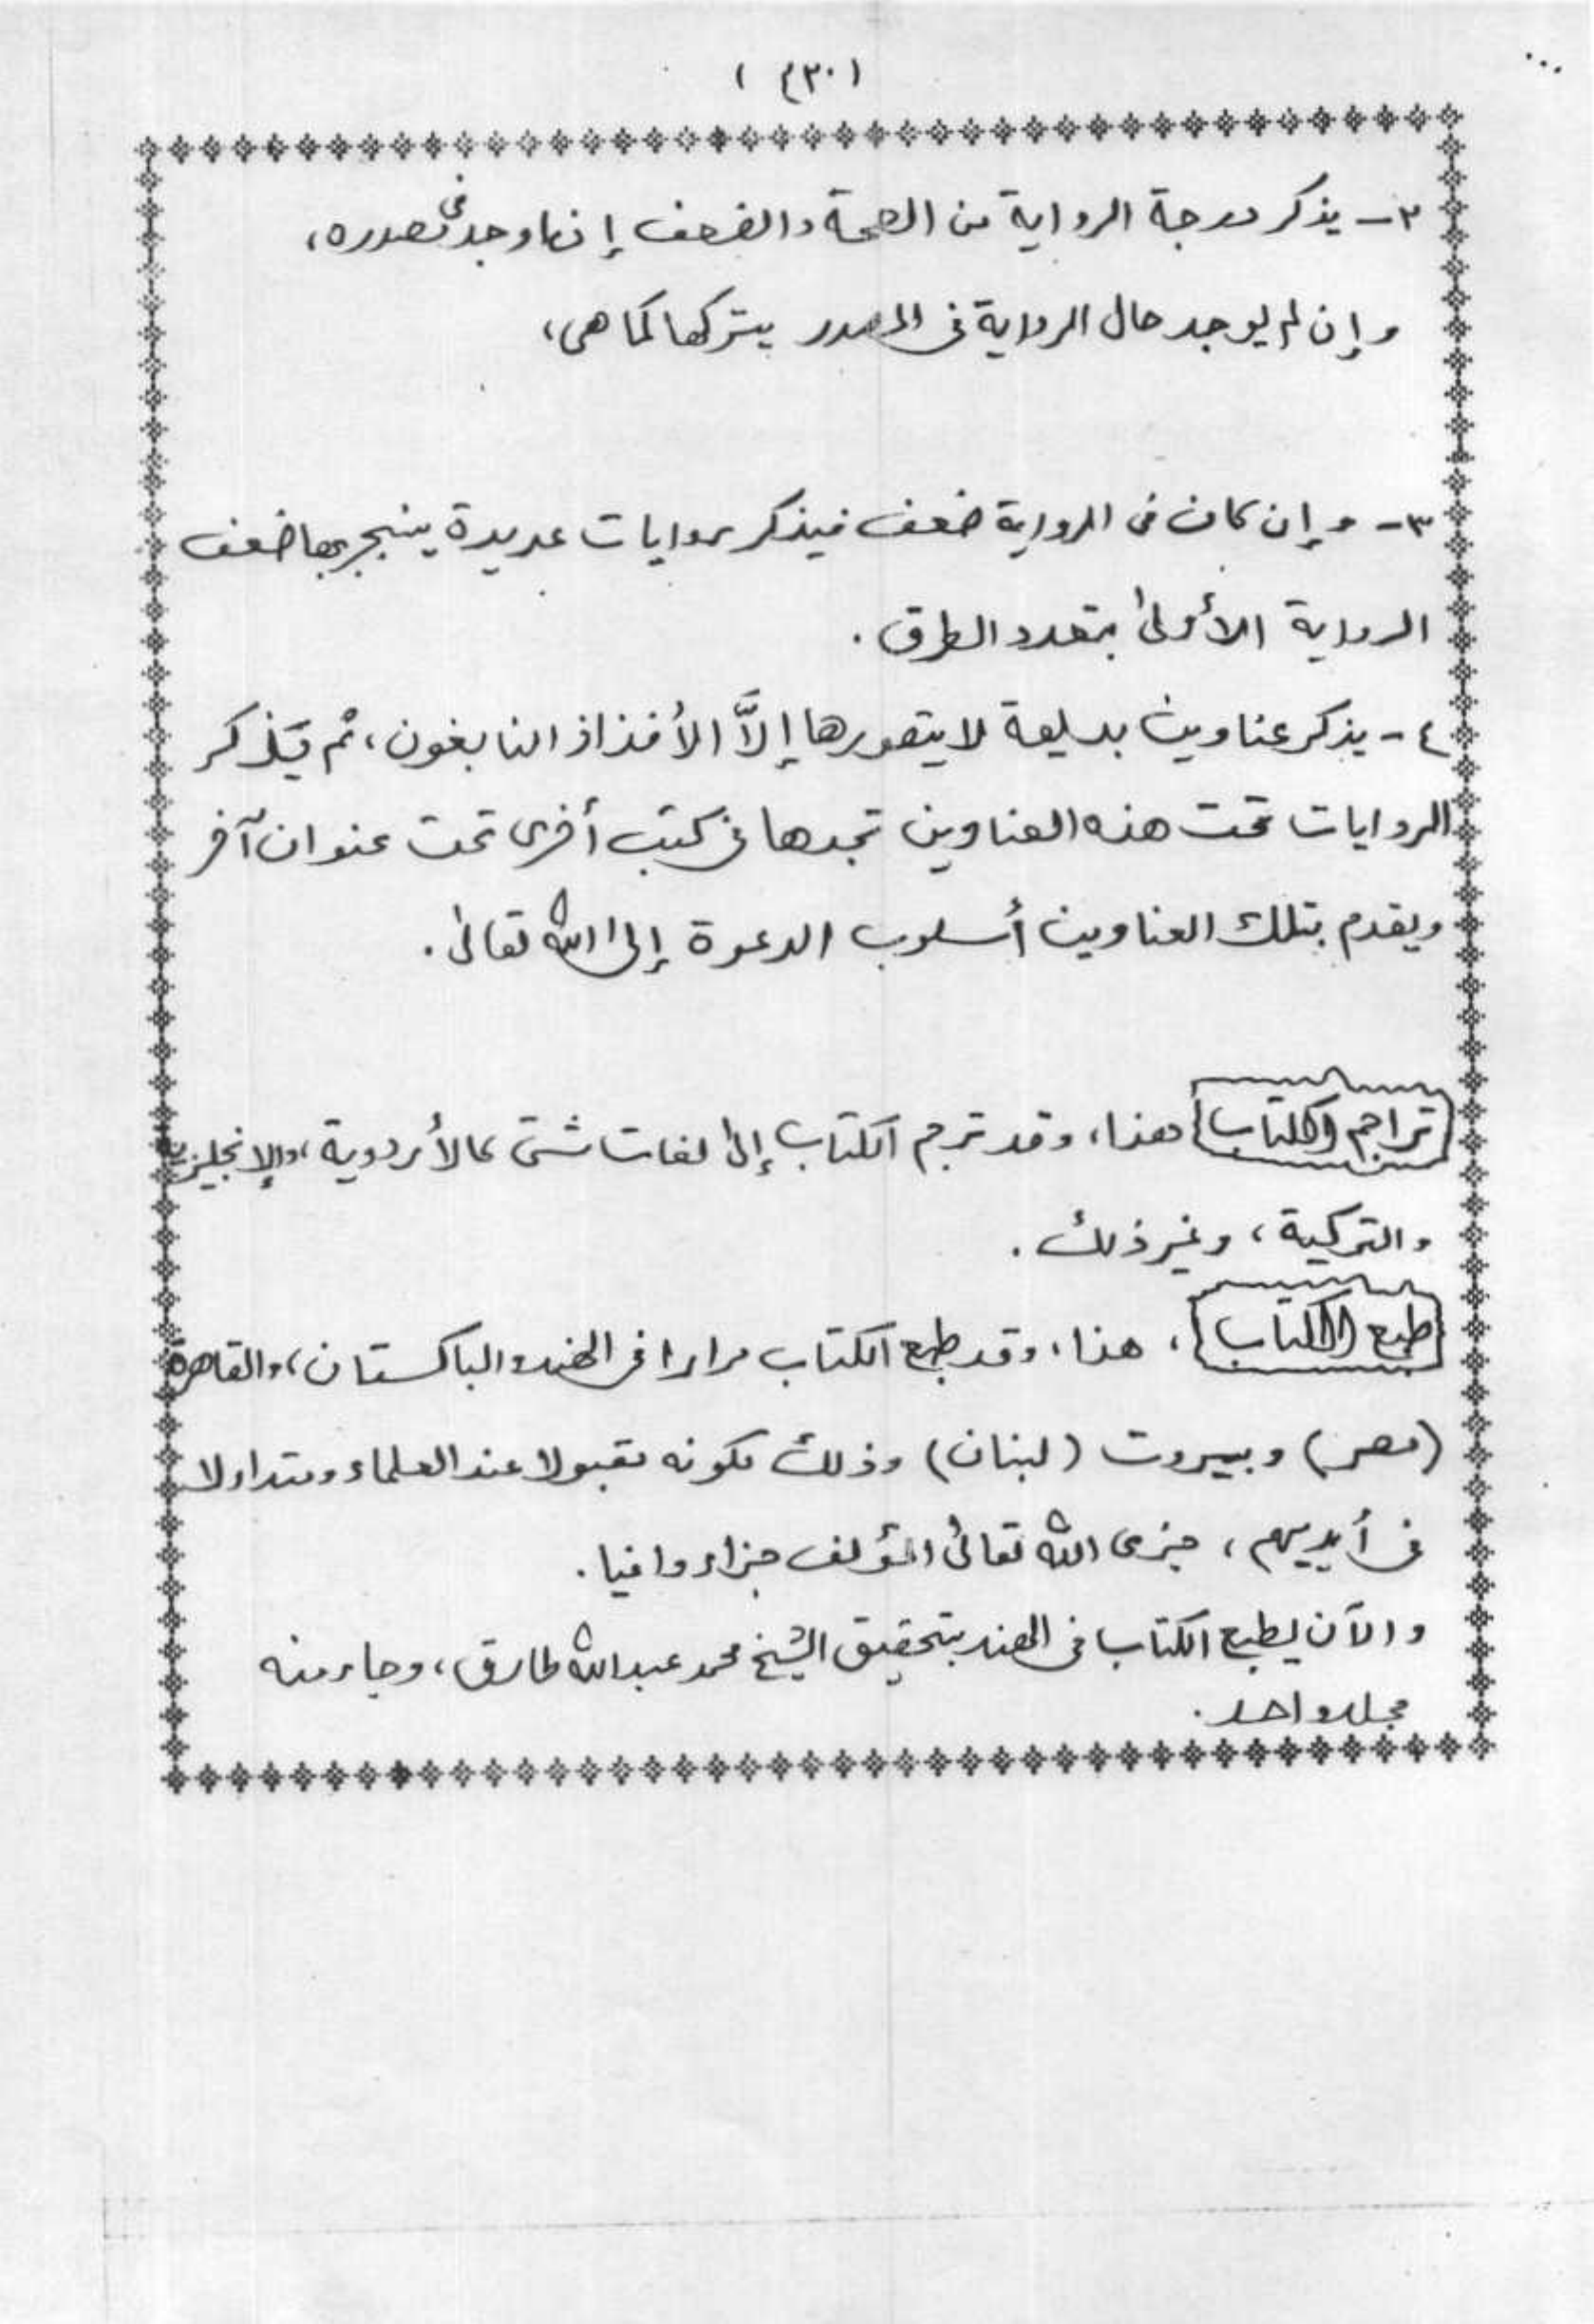 ( ٤٣٠ )
٢- يذكر درجة الرواية من الصحة والضعف إنما وجد في مصدره،
وإن لم يوجد حال الرواية في المصدر يتركها كما هي،
٣- وإن كان في الرواية ضعف فيذكر روايات عديدة ينجبر بها ضعف
الرواية الأولى بتعدد الطرق .
٤- يذكر عناوين بديعة لا يتصورها إلَّا الأفذاذ النابغون، ثم يَذكر
الروايات تحت هذه العناوين تجدها في كتب أخرى تحت عنوان آخر
ويقدم بتلك العناوين أسلوب الدعوة إلى الله تعالى .
تراجم الكتاب هذا، وقد ترجم الكتاب إلى لغات شتى كالأردوية، والإنجليزية
والتركية، وغير ذلك .
طبع الكتاب ، هذا، وقد طبع الكتاب مرارا في الهند والباكستان، والقاهرة
(مصر) وبيروت (لبنان) وذلك لكونه مقبولا عند العلماء ومتداولا
في أيديهم، جزى الله تعالى المؤلف جزاء وافيا .
والآن يطبع الكتاب في الهند بتحقيق الشيخ محمد عبد الله طارق، وجاء منه
مجلد واحد .